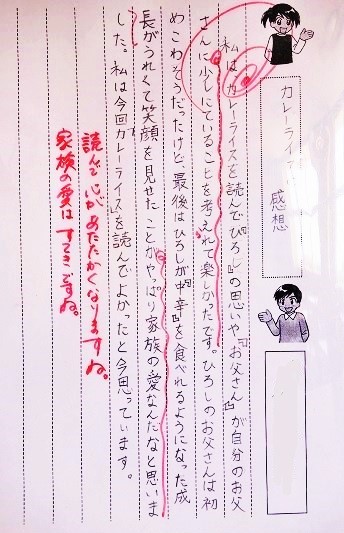 カレーライス 感想
私は『カレーライス』を読んで『ひろし』の思いや『お父さん』が自分のお父
さんに少しにていることを考えれて楽しかったです。ひろしのお父さんは初
めこわそうだったけど、最後はひろしが『中辛』を食べれるようになった成
長がうれくて笑顔を見せたことがやっぱり家族の愛なんだなと思いま
した。私は今回『カレーライス』を読んでよかったと今思っています。
読んで心があたたかくなりますね。
家族の愛はすてきですね。